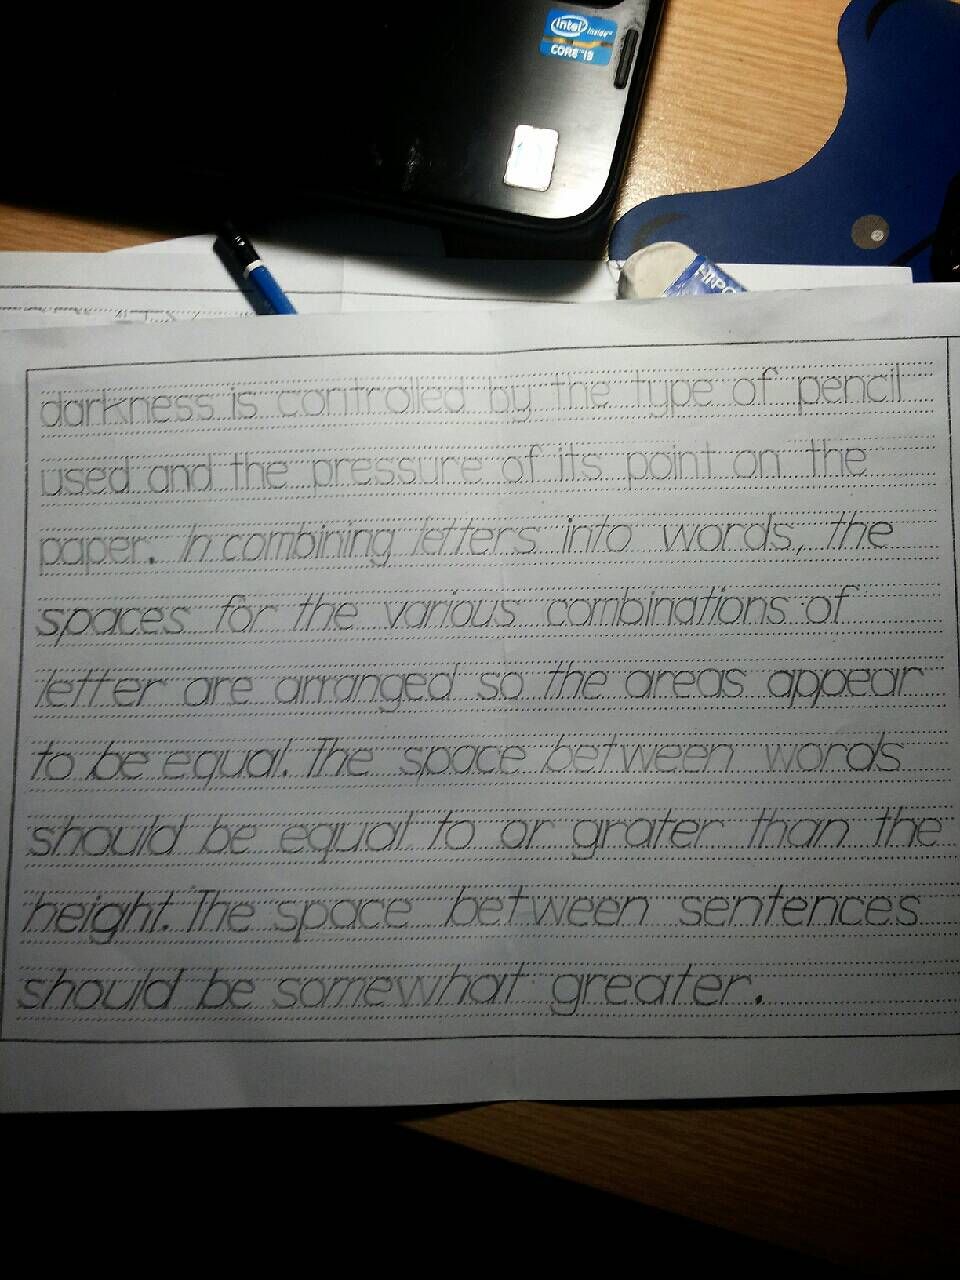 intel inside™
CORE™ i3
darkness is controlled by the type of pencil
used and the pressure of its point on the
paper. In combining letters into words, the
spaces for the various combinations of
letter are arranged so the areas appear
to be equal. The space between words
should be equal to or grater than the
height. The space between sentences
should be somewhat greater.